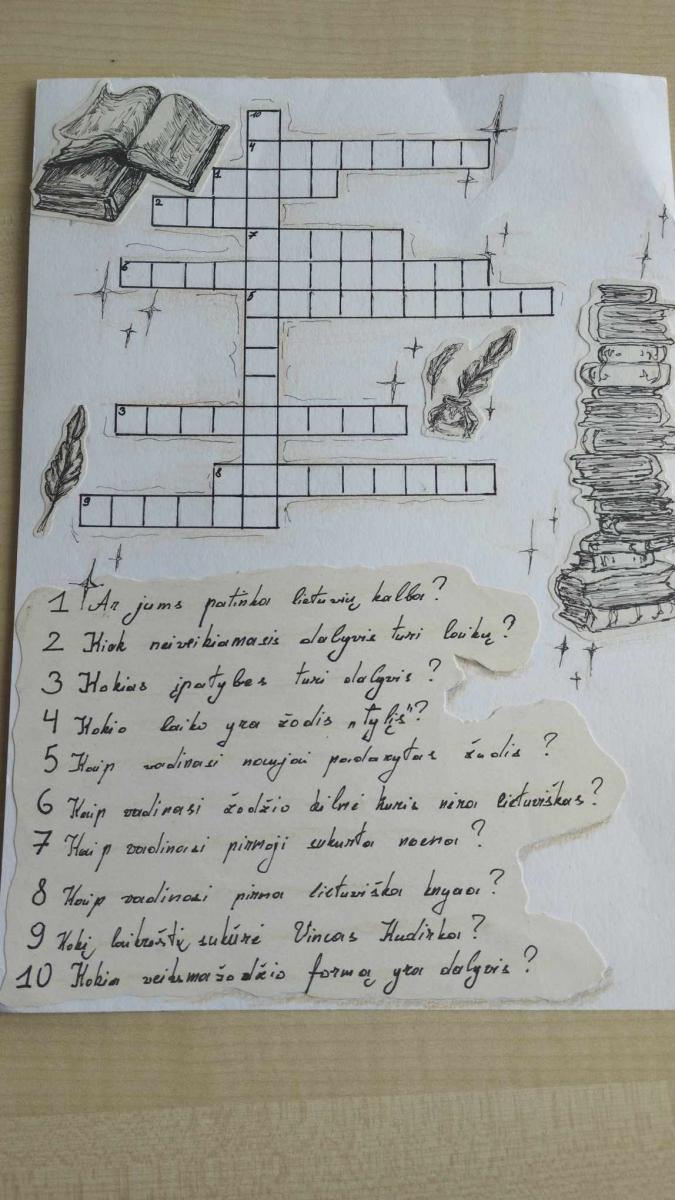 10
4
1
2
7
6
5
3
8
9
1 Ar jums patinka lietuvių kalba?
2 Kiek neiveikiamasis dalyvis turi laikų?
3 Kokias įpatybes turi dalyvis?
4 Kokio laiko yra žodis „tylįs"?
5 Kaip vadinasi naujai padarytas žodis?
6 Kaip vadinasi žodžio kilmė kuris nėra lietuviškas?
7 Kaip vadinasi pirmoji sukurta
8 Kaip vadinasi pirma lietuviška knyga?
9 Kokį laikraštį sukūrė Vincas Kudirka?
10 Kokia veiksmažodžio formą yra dalyvis?